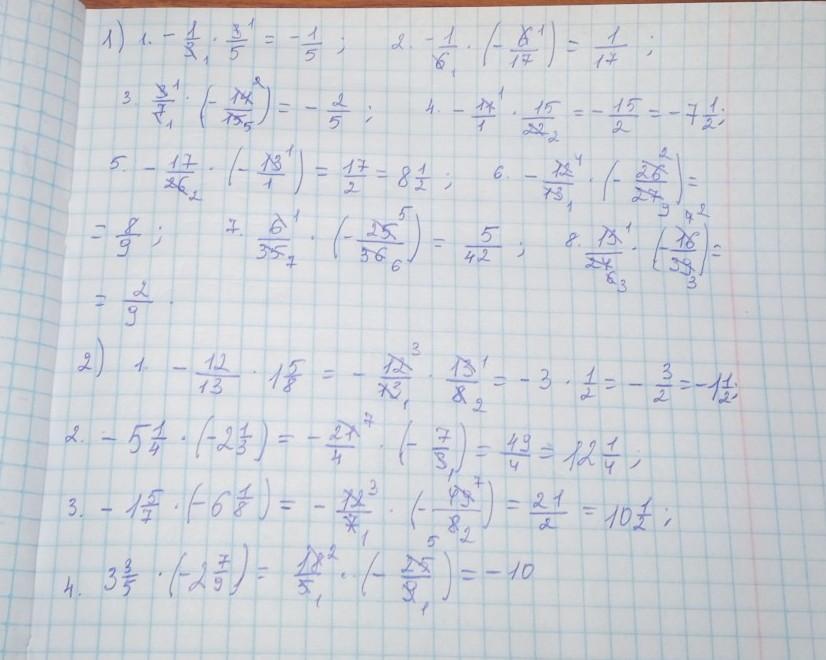 1) 1. -1/3₁ · 3¹/5 = -1/5 ; 2. -1/6₁ · (-6¹/17) = 1/17 ;
3. 3¹/7₁ · (-14²/15₅) = -2/5 ; 4. -11¹/1 · 15/22₂ = -15/2 = -7 1/2 ;
5. -17/26₂ · (-13¹/1) = 17/2 = 8 1/2 ; 6. -12⁴/13₁ · (-26²/27₉) =
= 8/9 ; 7. 6¹/35₇ · (-25⁵/36₆) = 5/42 ; 8. 13¹/24₆₃ · (-16⁷²/39₃) =
= 2/9 .
2) 1. -12/13 · 1 5/8 = -12³/13₁ · 13¹/8₂ = -3 · 1/2 = -3/2 = -1 1/2 ;
2. -5 1/4 · (-2 1/3) = -21⁷/4 · (-7/3₁) = 49/4 = 12 1/4 ;
3. -1 5/7 · (-6 1/8) = -12³/7₁ · (-49⁷/8₂) = 21/2 = 10 1/2 ;
4. 3 3/5 · (-2 7/9) = 18²/5₁ · (-25⁵/9₁) = -10